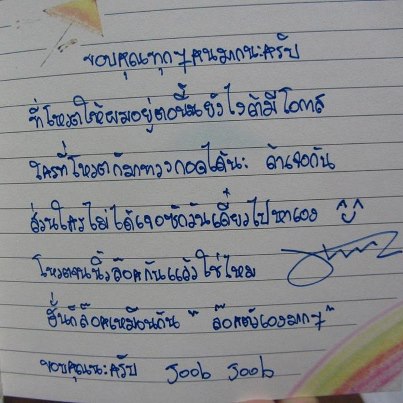 ขอบคุณทุกๆคนมากนะครับ
ที่โหวตให้ผมอยู่ตอนนี้ยังไงถ้ามีโอกาส
ใครที่โหวตก็มาทวงกอดได้นะ ถ้าเจอกัน
ส่วนใครไม่ได้เจอซักวันเดี๋ยวไปหาเอง ^_^
โหวตจนนิ้วล๊อคกันแล้วใช่ไหม
ฮั่นก็ล๊อคเหมือนกัน "ล๊อคตัวเองมาก ๆ"
ขอบคุณนะครับ จุ๊บๆ จุ๊บๆ